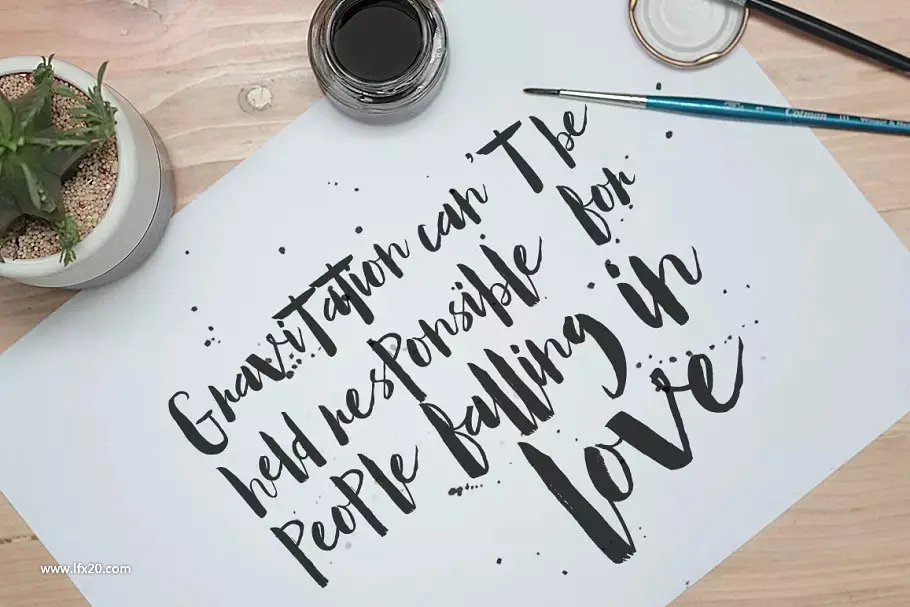 Gravitation can't be
held responsible for
people falling in
love
Cotman
www.lfx20.com